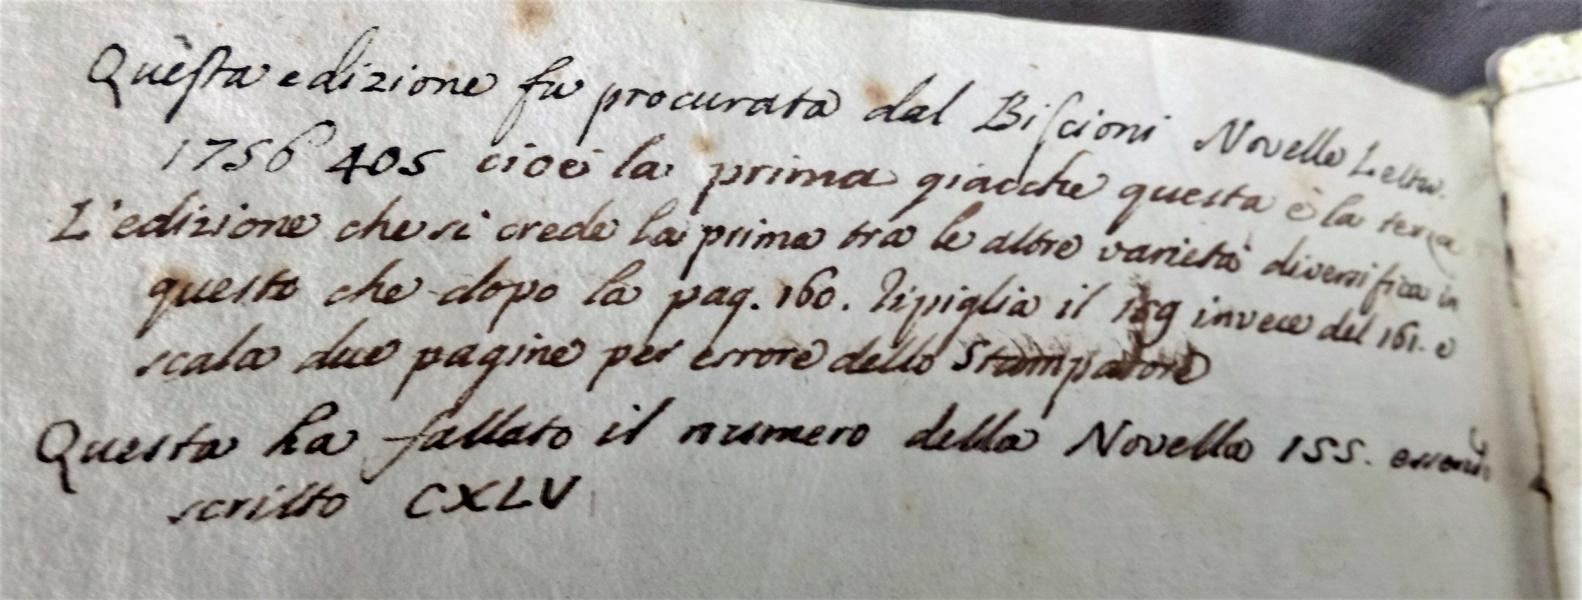 Questa edizione fu procurata dal Biscioni Novelle Letter.
1756 405 cioè la prima giacche questa è la terza
L'edizione che si crede la prima tra le altre varietà diversifica in
questo che dopo la pag. 160. ripiglia il 159 invece del 161. e
scala due pagine per errore dello Stampatore
Questa ha fallato il numero della Novella 155. essendo
scritto CXLV